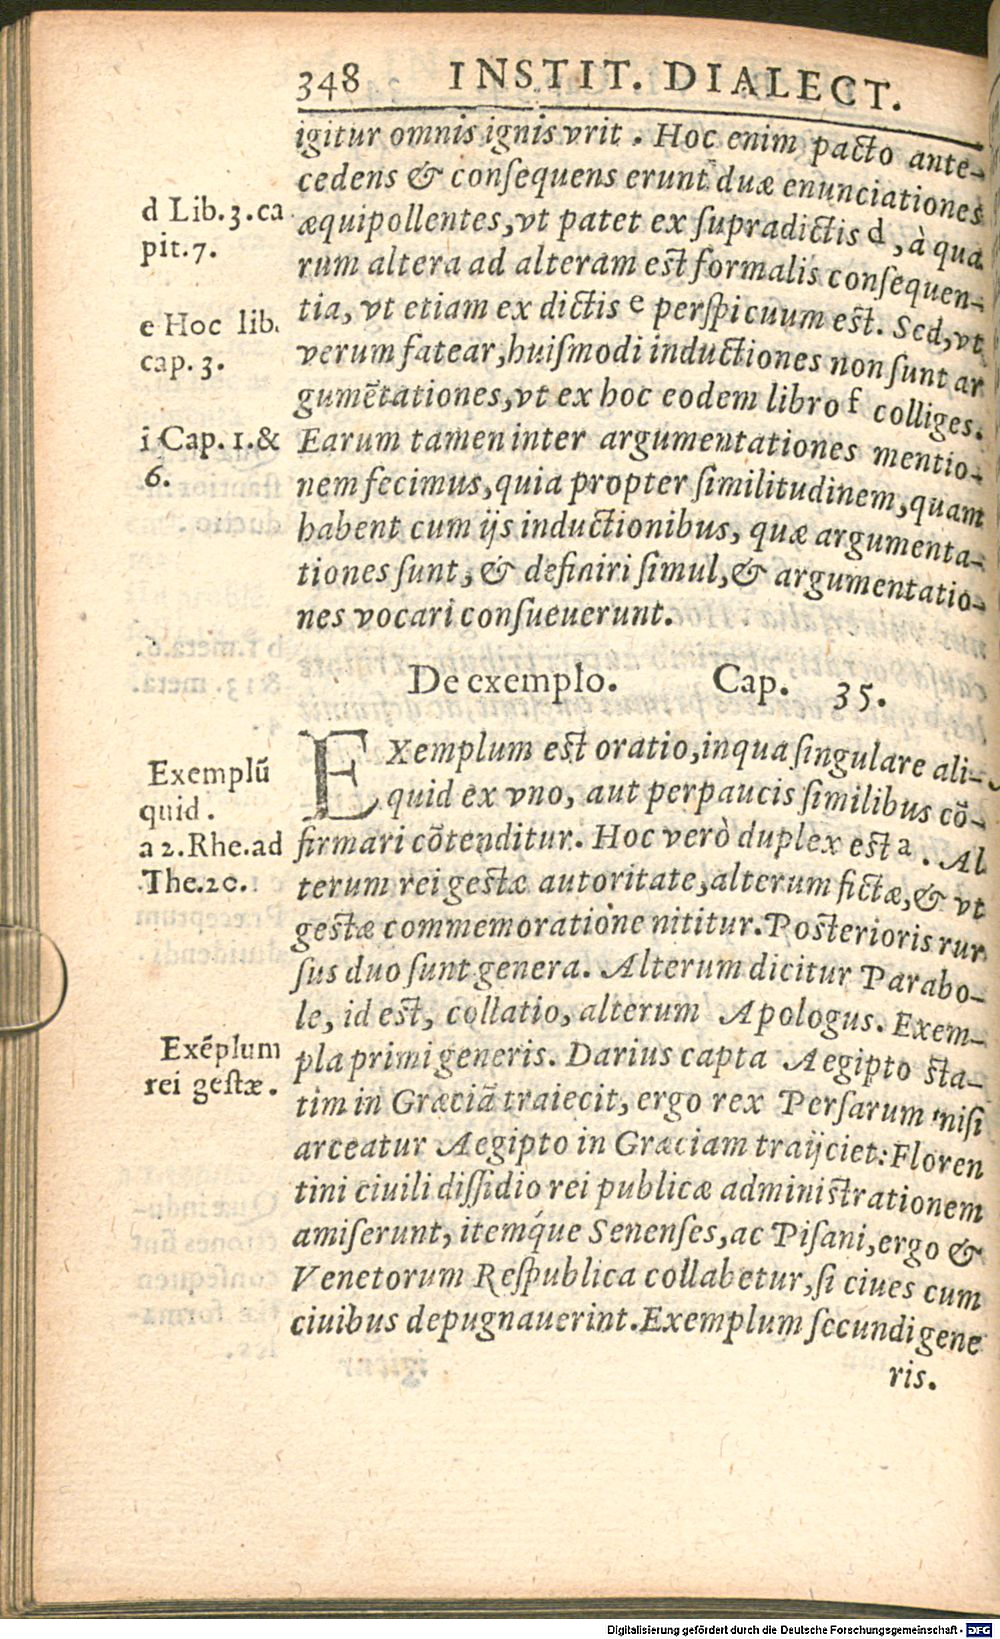 348 INSTIT. DIALECT.
igitur omnis ignis vrit. Hoc enim pacto ante-
cedens & conſequens erunt duæ enunciationes
æquipollentes, vt patet ex ſupradictis d, à qua
rum altera ad alteram eſt formalis conſequen-
tia, vt etiam ex dictis e perſpicuum eſt. Sed, vt
verum fatear, huiſmodi inductiones non ſunt ar
gumẽtationes, vt ex hoc eodem libro f colliges.
Earum tamen inter argumentationes mentio-
nem fecimus, quia propter ſimilitudinem, quam
habent cum ijs inductionibus, quæ argumenta-
tiones ſunt, & definiri ſimul, & argumentatio-
nes vocari conſueuerunt.
d Lib.3.ca
pit.7.
e Hoc lib.
cap.3.
i Cap.1.&
6.
De exemplo. Cap. 35.
EXemplum eſt oratio, in qua ſingulare ali-
quid ex vno, aut perpaucis ſimilibus cõ-
firmari cõtenditur. Hoc verò duplex eſt a. Al
terum rei geſtæ autoritate, alterum fictæ, & vt
geſtæ commemoratione nititur. Poſterioris rur
ſus duo ſunt genera. Alterum dicitur Parabo-
le, id eſt, collatio, alterum Apologus. Exem-
pla primi generis. Darius capta Aegipto ſta-
tim in Græciã traiecit, ergo rex Perſarum niſi
arceatur Aegipto in Græciam traijciet: Floren
tini ciuili diſſidio rei publicæ adminiſtrationem
amiſerunt, itemq́ue Senenſes, ac Piſani, ergo &
Venetorum Reſpublica collabetur, ſi ciues cum
ciuibus depugnauerint. Exemplum ſecundi gene
ris.
Exemplũ
quid.
a 2.Rhe.ad
The.20.
Exẽplum
rei geſtæ.
Digitalisierung gefördert durch die Deutsche Forschungsgemeinschaft - DFG